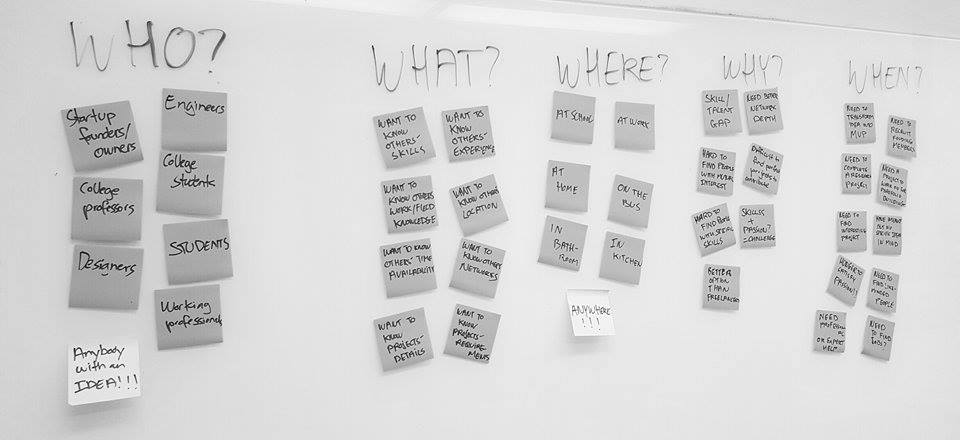 WHO?
Startup
founders/
owners
Engineers
College
professors
College
Students
Designers
STUDENTS
Working
professionals
Anybody
with an
IDEA!!!
WHAT?
WANT TO
KNOW
OTHERS'
SKILLS
WANT TO
KNOW
OTHERS'
EXPERIENCE
WANT TO
KNOW OTHERS
WORK/FIELD
KNOWLEDGE
WANT TO
KNOW OTHERS
LOCATION
WANT TO KNOW
OTHERS' TIME
AVAILABILITY
WANT TO
KNOW OTHERS
NETWORKS
WANT TO
KNOW
PROJECTS'
DETAILS
WANT TO
KNOW
PROJECTS'
REQUIRE
MENTS
WHERE?
AT SCHOOL
AT WORK
AT
HOME
ON THE
BUS
IN
BATH-
ROOM
IN
KITCHEN
ANYWHERE
!!!
WHY?
SKILL/
TALENT
GAP
NEED BETTER
NETWORK
DEPTH
HARD TO
FIND PEOPLE
WITH MUTUAL
INTEREST
Difficult to
find perfect
projects to
contribute
HARD TO
FIND PEOPLE
WITH SPECIAL
SKILLS
SKILLS
+
PASSION?
= CHALLENGE
BETTER
OPTION
THAN
FREELANCER
WHEN?
NEED TO
TRANSFORM
IDEA INTO
MVP
NEED TO
RECRUIT
FOUNDING
MEMBERS
NEED TO
COMPLETE
A RESEARCH
PROJECT
NEED A
PROJECT TO
WORK ON FOR
PORTFOLIO
BUILDING
NEED TO
FIND
INTERESTING
PROJECT
HAVE MONEY
BUT NO
SPECIFIC IDEA
IN MIND
HUNGER TO
SATISFY
PASSION!!
NEED TO
FIND LIKE-
MINDED
PEOPLE
NEED
OR EXPERT
HELP
NEED
TO FIND
JOBS?